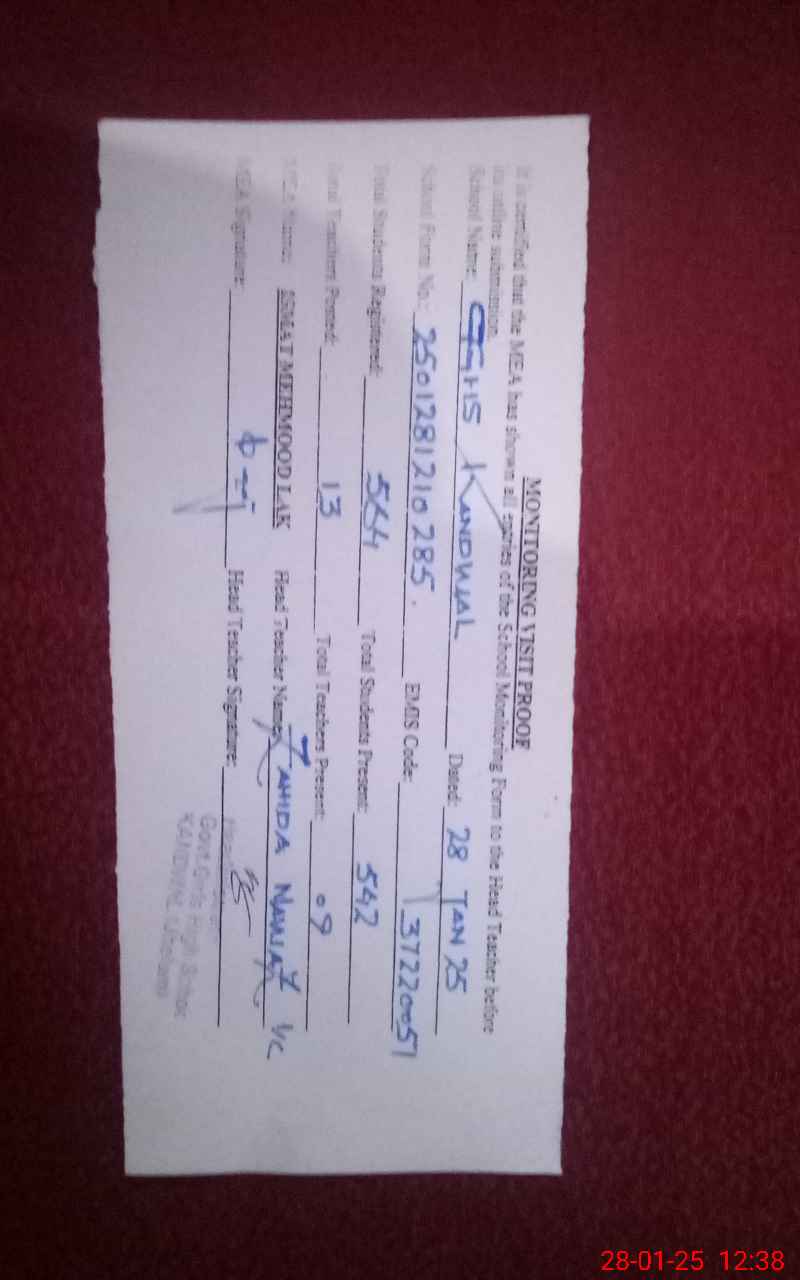 MONITORING VISIT PROOF
It is certified that the MEA has shown all entries of the School Monitoring Form to the Head Teacher before
its online submission.
School Name: GGHS KANDWAL Dated: 28 JAN 25
School Form No.: 2501281210285. EMIS Code: 37220051
Total Students Registered: 564 Total Students Present: 542
Total Teachers Posted: 13 Total Teachers Present: 09
MEA Name: ISMAT MEHMOOD LAK Head Teacher Name: ZAHIDA NAWAZ I/C
MEA Signature: Head Teacher Signature:
Govt. Girls High School
KANDWAL
28-01-25 12:38